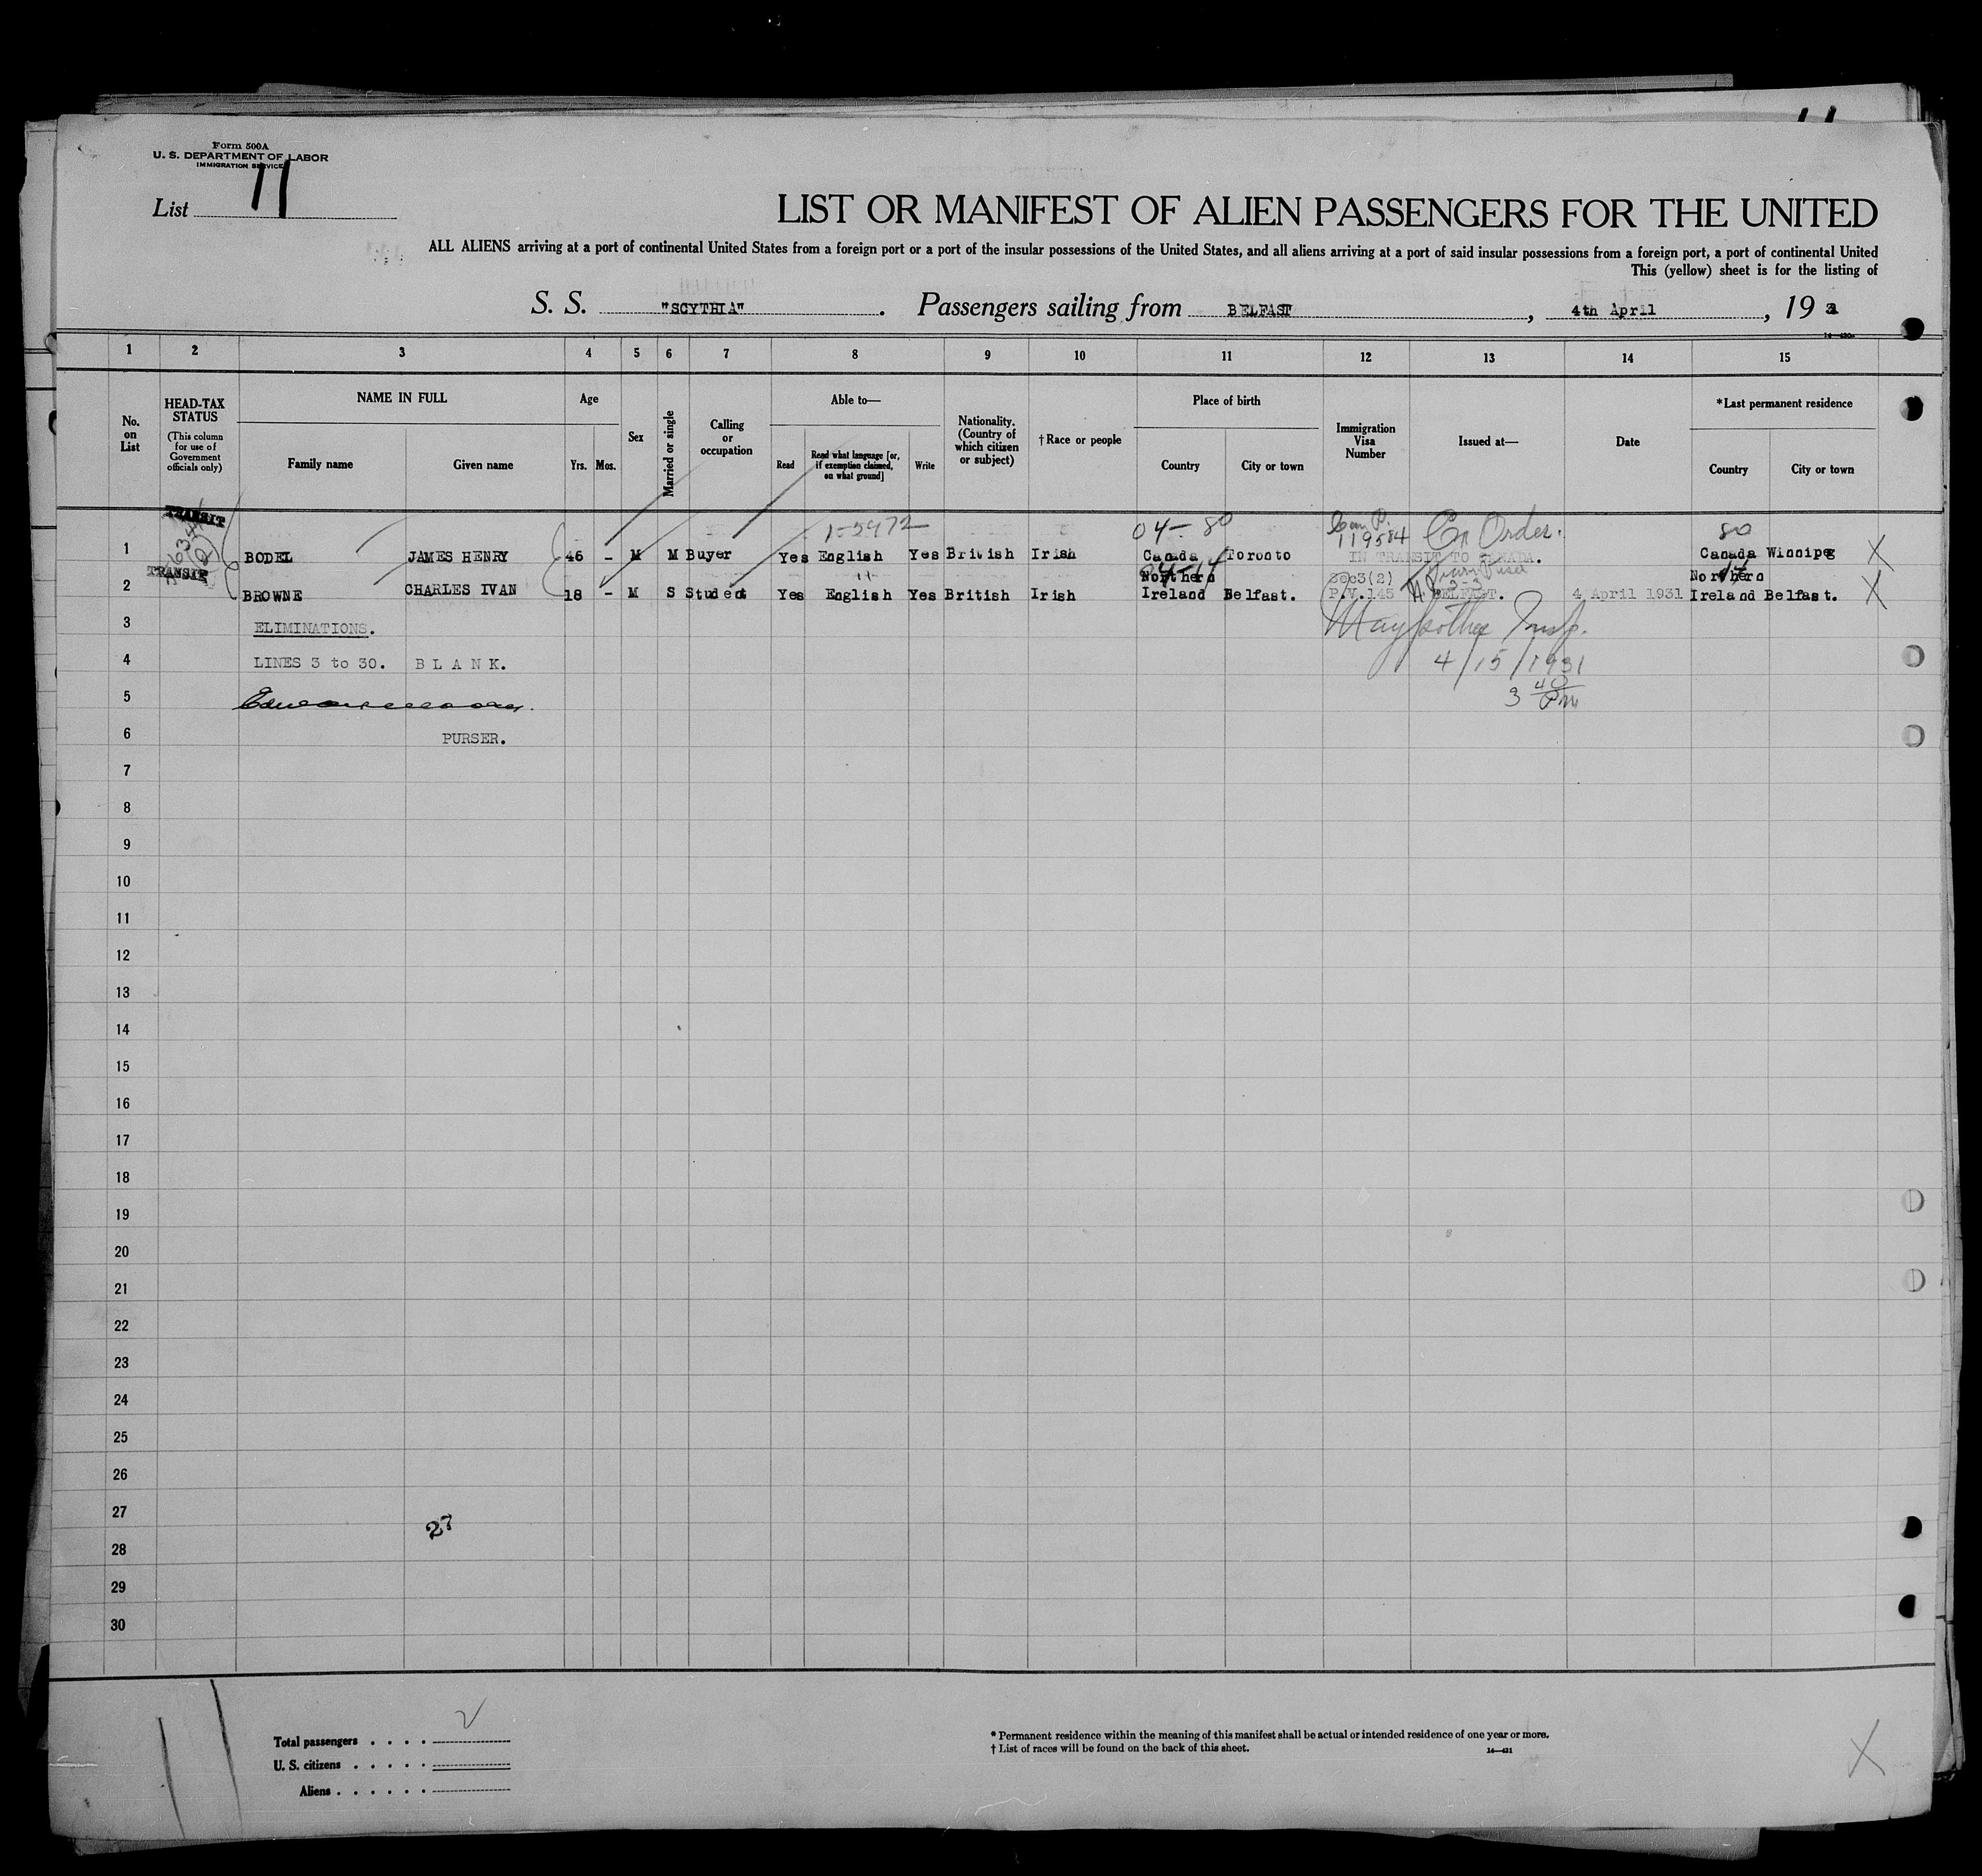 11
Form 500A
U. S. DEPARTMENT OF LABOR
IMMIGRATION SERVICE
List 11
LIST OR MANIFEST OF ALIEN PASSENGERS FOR THE UNITED
ALL ALIENS arriving at a port of continental United States from a foreign port or a port of the insular possessions of the United States, and all aliens arriving at a port of said insular possessions from a foreign port, a port of continental United
This (yellow) sheet is for the listing of
S. S. "SCYTHIA" . Passengers sailing from BELFAST , 4th April , 19
1 2 3 4 5 6 7 8 9 10 11 12 13 14 15
No. on List
HEAD-TAX STATUS
(This column for use of Government officials only)
NAME IN FULL
Family name Given name
Age
Yrs. Mos.
Sex
Married or single
Calling or occupation
Able to—
Read Read what language [or, if exemption claimed, on what ground] Write
Nationality. (Country of which citizen or subject)
†Race or people
Place of birth
Country City or town
Immigration Visa Number
Issued at—
Date
*Last permanent residence
Country City or town
TRANSIT
1-5972 04-80 Can P. 119584 Order. 80
1 BODEL JAMES HENRY 46 - M M Buyer Yes English Yes British Irish Canada Toronto IN TRANSIT TO CANADA. Canada Winnipeg X
TRANSIT
2 BROWNE CHARLES IVAN 18 - M S Student Yes English Yes British Irish Northern Ireland Belfast. Sec3(2) P.V.145 BELFAST. 4 April 1931 Northern Ireland Belfast. X
3 ELIMINATIONS. Insp.
4 LINES 3 to 30. B L A N K. 4/15/1931
5 3 40 PM
6 PURSER.
7
8
9
10
11
12
13
14
15
16
17
18
19
20
21
22
23
24
25
26
27
27
28
29
30
Total passengers . . . . 2
U. S. citizens . . . . .
Aliens . . . . . .
* Permanent residence within the meaning of this manifest shall be actual or intended residence of one year or more.
† List of races will be found on the back of this sheet.
14—421
X